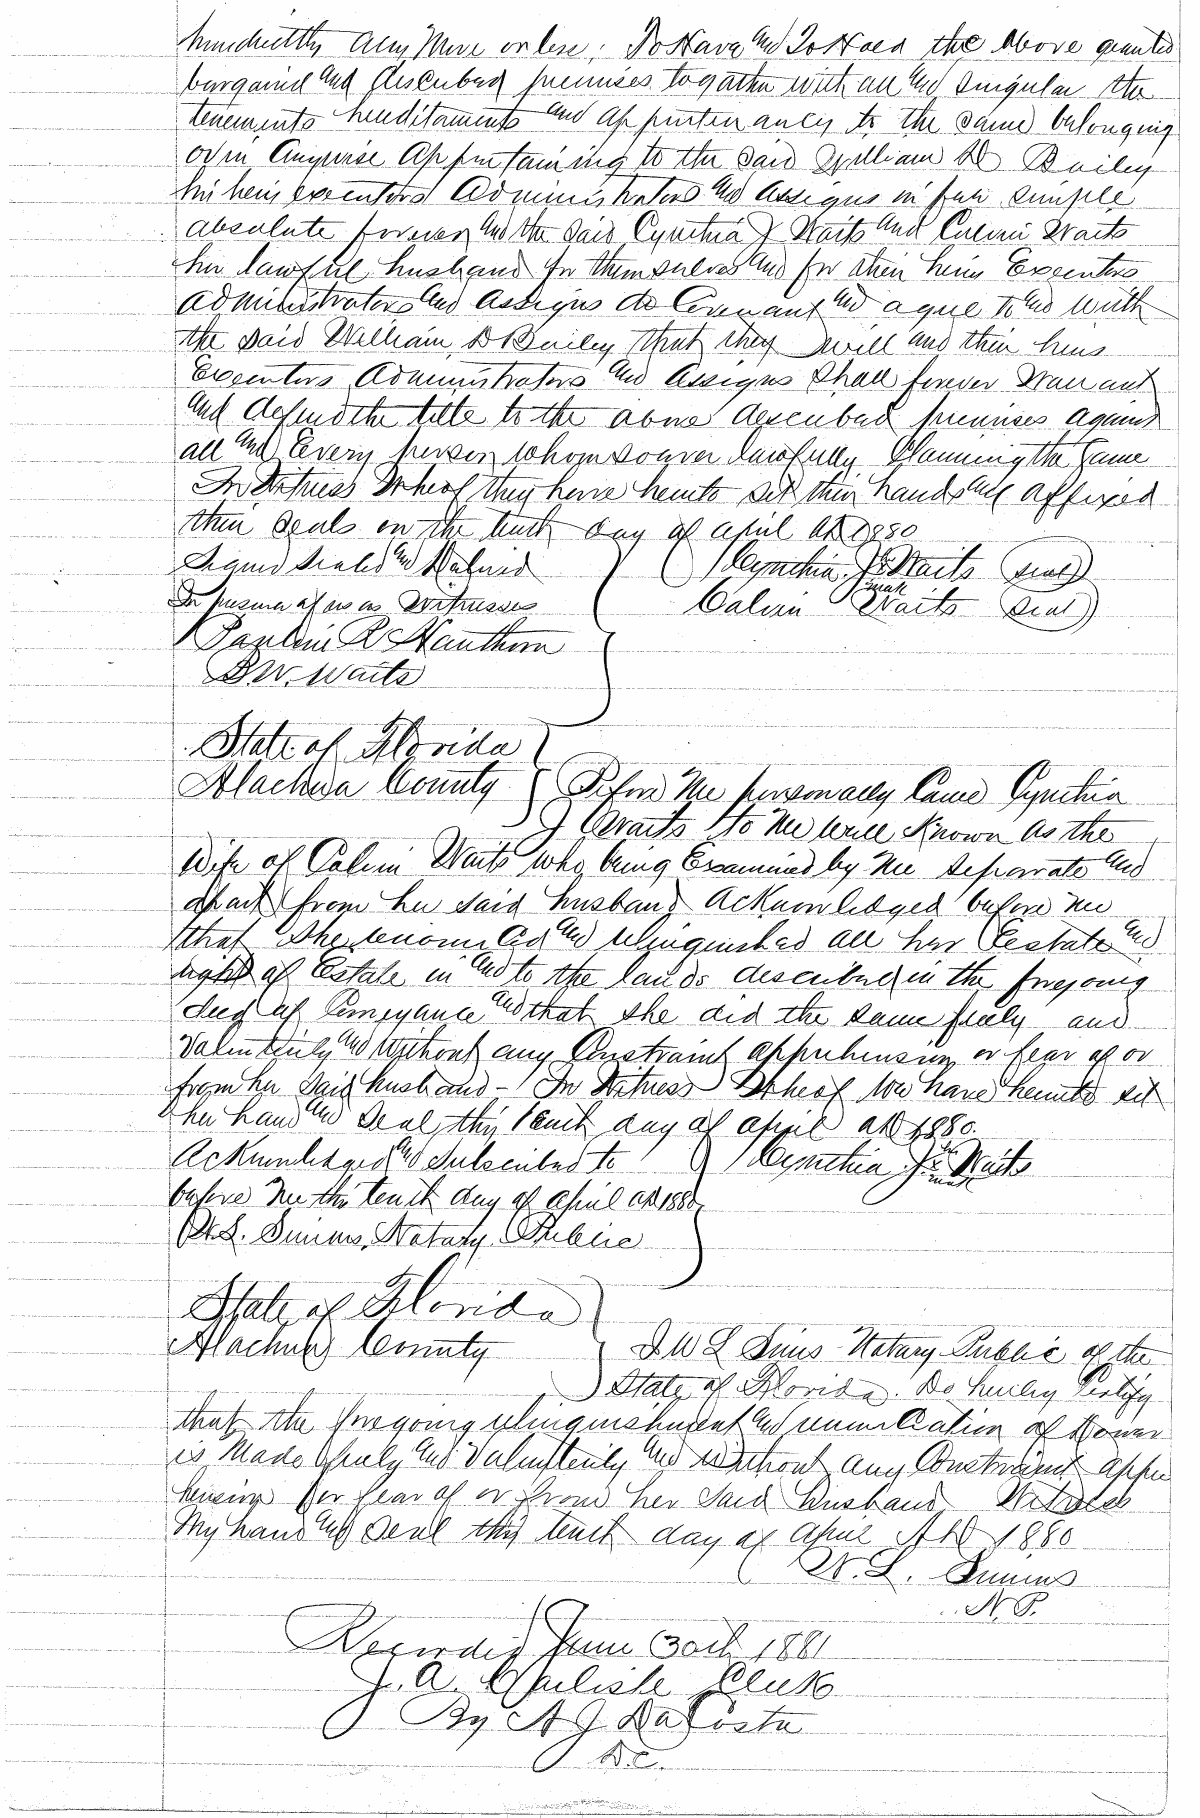 hundredths Acres More or less. To Have and To Hold the above granted
bargained and described premises together with all and singular the
tenements hereditaments and appurtenancies to the same belonging
or in Anywise Appertaining to the said William D Bailey
his heirs executors Administrators and Assigns in fee simple
absolute forever And the said Cynthia J Waits and Calvin Waits
her lawful husband for themselves and for their heirs Executors
Administrators and Assigns do Covenant and agree to and with
the said William D Bailey that they will and their heirs
Executors Administrators and Assigns Shall forever Warrant
and defend the title to the above described premises against
all and Every person whomsoever lawfully Claiming the same
In Witness Wheof they have hereunto set their hands and affixed
their seals on the tenth day of April AD 1880
Signed Sealed and Delivered } Cynthia J Waits (seal)
mark
In presence of us as Witnesses Calvin Waits (seal)
R Hawthorn
B W. Waits
State of Florida }
Alachua County } Before Me personally Came Cynthia
J Waits to Me well Known as the
Wife of Calvin Waits who being Examined by Me separate and
apart from her said husband Acknowledged before me
that She renounced and relinquished all her Estate and
right of Estate in and to the lands described in the foregoing
deed of Conveyance and that she did the same freely and
Valuntarily and Without any Constraint apprehension or fear of or
from her said husband - In Witness Wheof We have hereunto set
her hand and Seal this tenth day of April AD 1880.
Acknowledged and Subscribed to } Cynthia J Waits
before Me this tenth day of April AD 1880
W.L. Simms, Notary Public
State of Florida }
Alachua County } I W L Sims Notary Public of the
State of Florida. Do hereby Certify
that the foregoing relinquishment and renunciation of Dower
is Made freely and Valuntarily and without any Constraint appre
hension or fear of or from her said husband Witness
My hand and Seal this tenth day of April AD 1880
W. L. Simms
N. P.
Recorded June 30th 1881
J. A. Carlisle Clerk
By A J DaCosta
D.C.